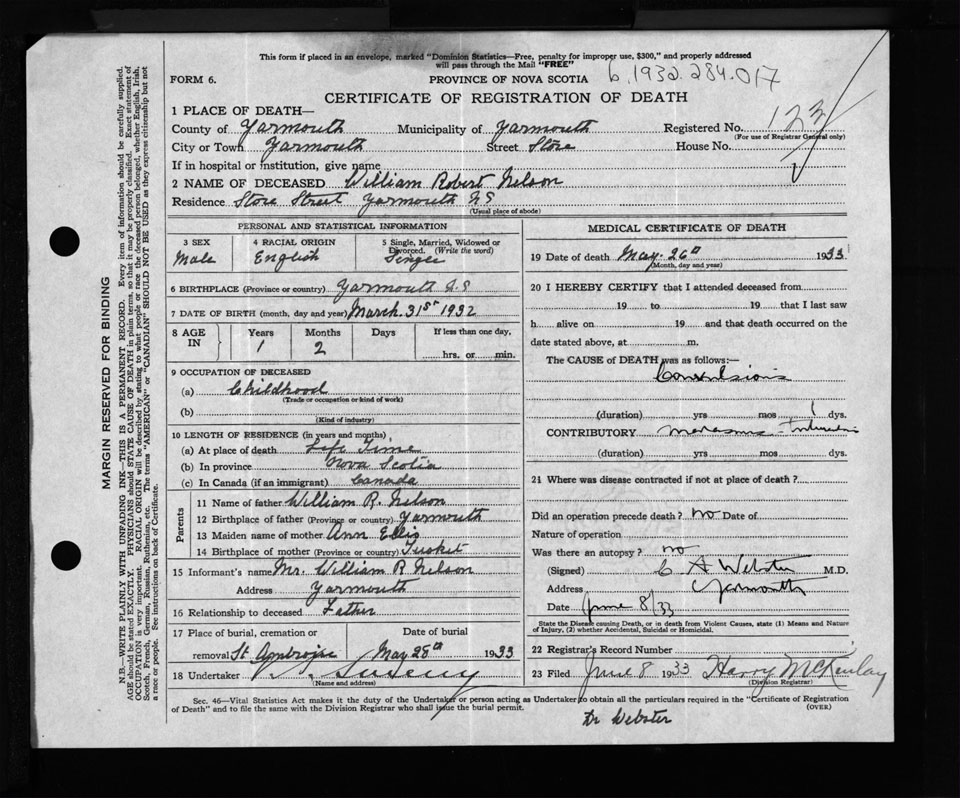 This form if placed in an envelope, marked "Dominion Statistics—Free, penalty for improper use, $300," and properly addressed
will pass through the Mail "FREE"
FORM 6.
PROVINCE OF NOVA SCOTIA
b.1932.284.017
CERTIFICATE OF REGISTRATION OF DEATH
1 PLACE OF DEATH—
County of Yarmouth Municipality of Yarmouth Registered No. 123
(For use of Registrar General only)
City or Town Yarmouth Street Store House No.
If in hospital or institution, give name
2 NAME OF DECEASED William Robert Nelson
Residence Store Street Yarmouth N S
(Usual place of abode)
PERSONAL AND STATISTICAL INFORMATION
3 SEX 4 RACIAL ORIGIN 5 Single, Married, Widowed or
Divorced. (Write the word)
Male English Single
6 BIRTHPLACE (Province or country) Yarmouth N.S
7 DATE OF BIRTH (month, day and year) March 31st 1932
8 AGE IN Years Months Days If less than one day,
1 2 hrs. or min.
9 OCCUPATION OF DECEASED
(a) Childhood
(Trade or occupation or kind of work)
(b)
(Kind of industry)
10 LENGTH OF RESIDENCE (in years and months)
(a) At place of death Life Time
(b) In province Nova Scotia
(c) In Canada (if an immigrant) Canada
Parents
11 Name of father William R. Nelson
12 Birthplace of father (Province or country) Yarmouth
13 Maiden name of mother Ann Ellis
14 Birthplace of mother (Province or country) Tusket
15 Informant's name Mr. William R Nelson
Address Yarmouth
16 Relationship to deceased Father
17 Place of burial, cremation or Date of burial
removal St. Ambroise May 28th 1933
18 Undertaker
(Name and address)
MEDICAL CERTIFICATE OF DEATH
19 Date of death May 26th 1933
(Month, day and year)
20 I HEREBY CERTIFY that I attended deceased from
19 to 19 that I last saw
h alive on 19 and that death occurred on the
date stated above, at m.
The CAUSE OF DEATH was as follows:—
Convulsions
(duration) yrs mos 1 dys.
CONTRIBUTORY marasmus
(duration) yrs mos dys.
21 Where was disease contracted if not at place of death?
Did an operation precede death? no Date of
Nature of operation
Was there an autopsy? no
(Signed) A Webster M.D.
Address Yarmouth
Date June 8/33
State the Disease causing Death, or in death from Violent Causes, state (1) Means and Nature
of Injury, (2) whether Accidental, Suicidal or Homicidal.
22 Registrar's Record Number
23 Filed June 8 1933 Harry McKinlay
(Division Registrar)
Sec. 46—Vital Statistics Act makes it the duty of the Undertaker or person acting as Undertaker to obtain all the particulars required in the "Certificate of Registration
of Death" and to file the same with the Division Registrar who shall issue the burial permit.
(OVER)
Dr Webster
MARGIN RESERVED FOR BINDING
N.B.—WRITE PLAINLY WITH UNFADING INK—THIS IS A PERMANENT RECORD. Every item of information should be carefully supplied.
AGE should be stated EXACTLY. PHYSICIANS should STATE CAUSE OF DEATH in plain terms, so that it may be properly classified. Exact statement of
OCCUPATION is very important. RACIAL ORIGIN will be described by stating to what people or race the deceased person belonged, whether English, Irish,
Scotch, French, German, Russian, Ruthenian, etc. The terms "AMERICAN" or "CANADIAN" SHOULD NOT BE USED as they express citizenship but not
a race or people. See instructions on back of Certificate.